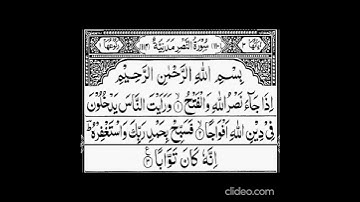 اٰيَاتُهَا ٣ (١١٠) سُوْرَةُ النَّصْرِ مَدَنِيَّةٌ (١١٤) رُكُوْعُهَا ١
بِسْمِ اللّٰهِ الرَّحْمٰنِ الرَّحِيْمِ
اِذَا جَآءَ نَصْرُ اللّٰهِ وَالْفَتْحُ ۙ﴿۱﴾ وَرَاَيْتَ النَّاسَ يَدْخُلُوْنَ
فِيْ دِيْنِ اللّٰهِ اَفْوَاجًا ۙ﴿۲﴾ فَسَبِّحْ بِحَمْدِ رَبِّكَ وَاسْتَغْفِرْهُ ؕ
اِنَّهٗ كَانَ تَوَّابًا ﴿۳﴾
clideo.com